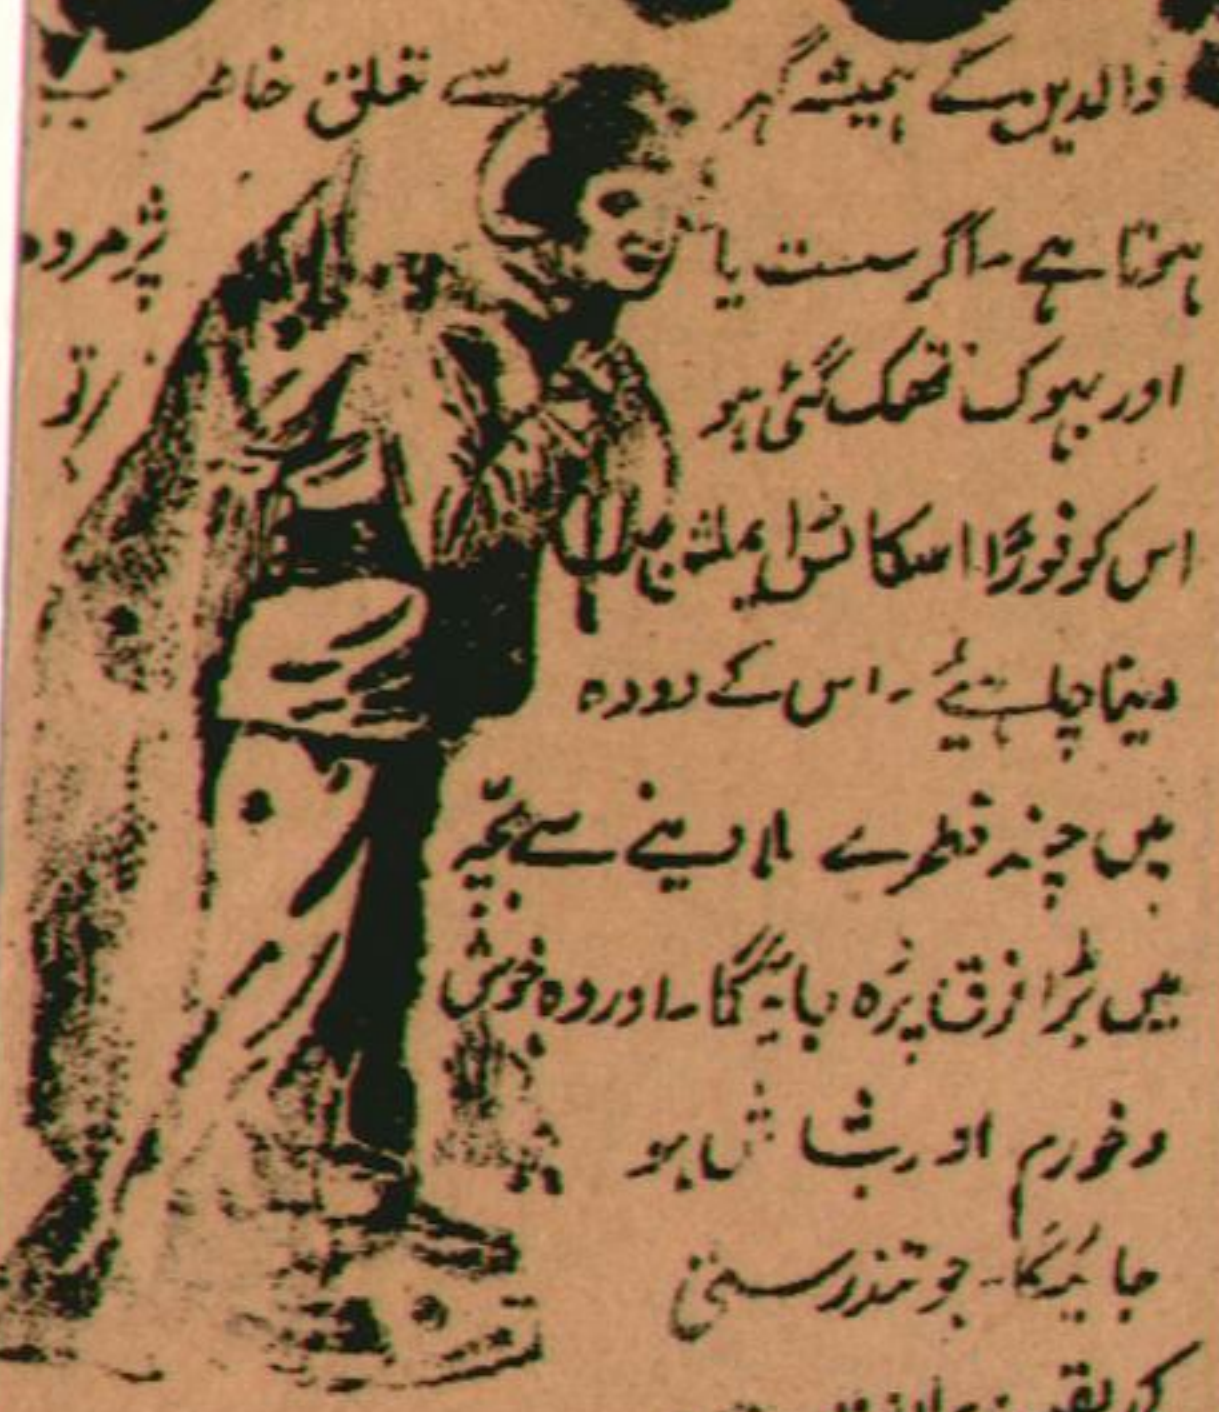 والدین کے ہمیشہ گہر سے تعلق خاطر
ہوتا ہے ۔ اگر سست یا پژمردہ
اور بہوک تھک گئی ہو تو
اس کو فوراً اسکاٹس ایملشن
دینا چاہیئے ۔ اس کے دودہ
میں چند قطرے ملا دینے سے بچّہ
میں بڑا فرق پڑہ جائیگا ۔ اور وہ خوش
و خورم اور بشاش ہو
جائیگا ۔ جو تندرستی